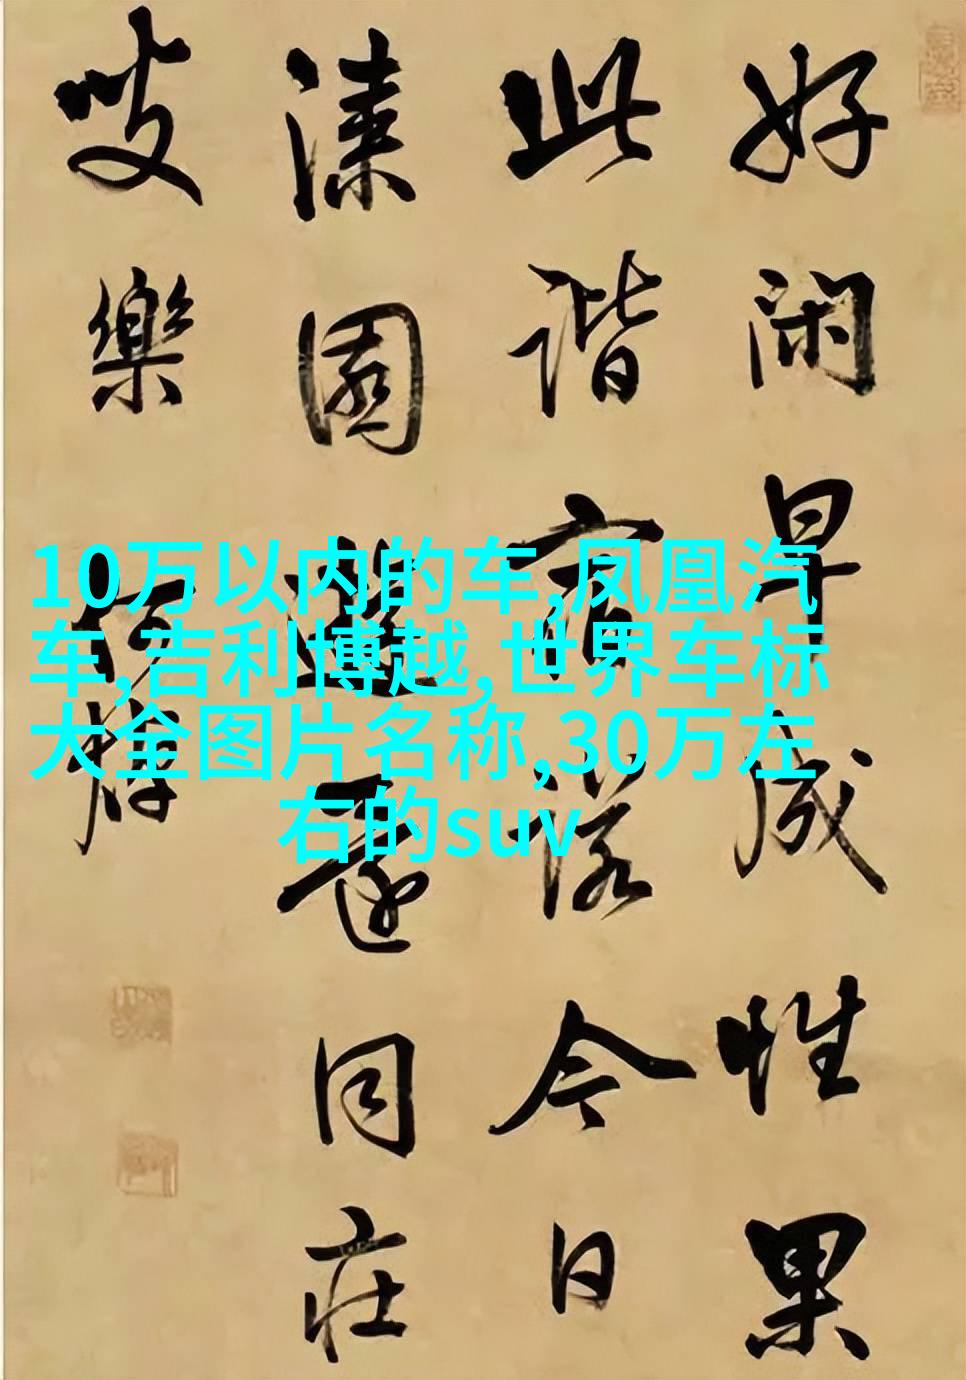 好閑早成性果
此諧宿諾今日
漆園遊還同庄
叟樂
何焯
10万以内的车,凤凰汽
车,吉利博越,世界车标
大全图片名称,30万左
右的suv